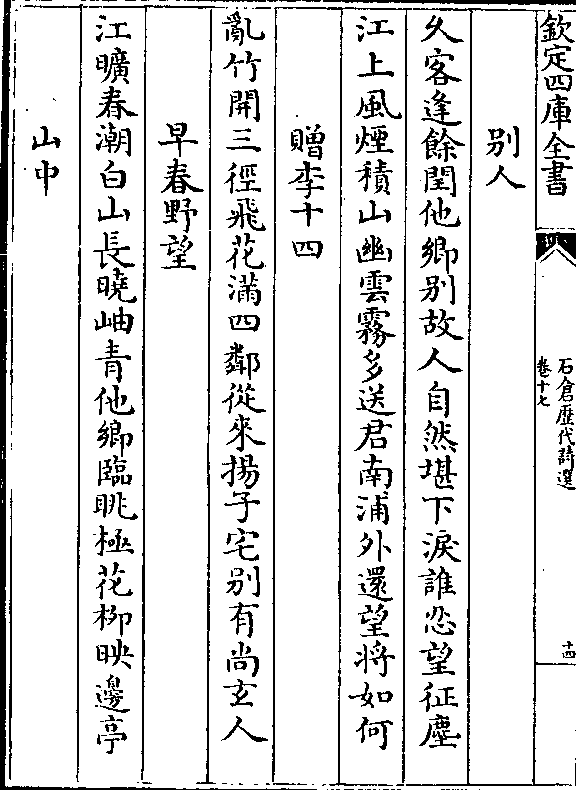 欽定四庫全書
石倉歷代詩選
卷十七
十四
别人
久客逢餘閏他鄉别故人自然堪下淚誰忍望征塵
江上風煙積山幽雲霧多送君南浦外還望將如何
贈李十四
亂竹開三徑飛花滿四鄰從來揚子宅别有尚玄人
早春野望
江曠春潮白山長曉岫青他鄉臨眺極花柳映邊亭
山中